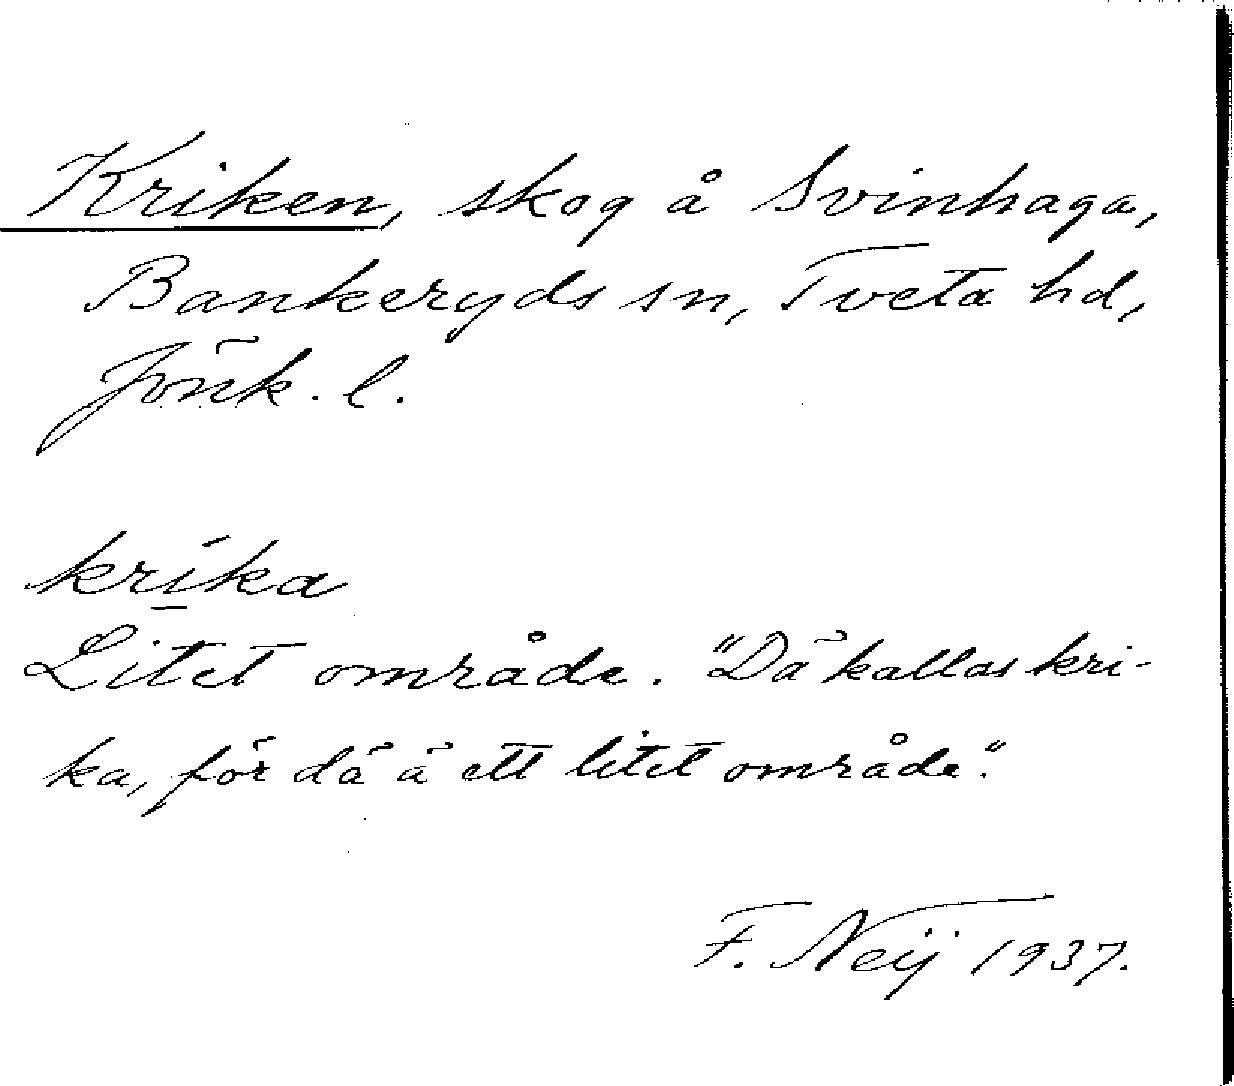 Kriken, skog å Svinhaga,
Bankeryds sn, Tveta hd,
Jönk. l.
krika
Litet område. "Dä kallas kri-
ka, för dä ä ett litet område."
F. Neij 1937.